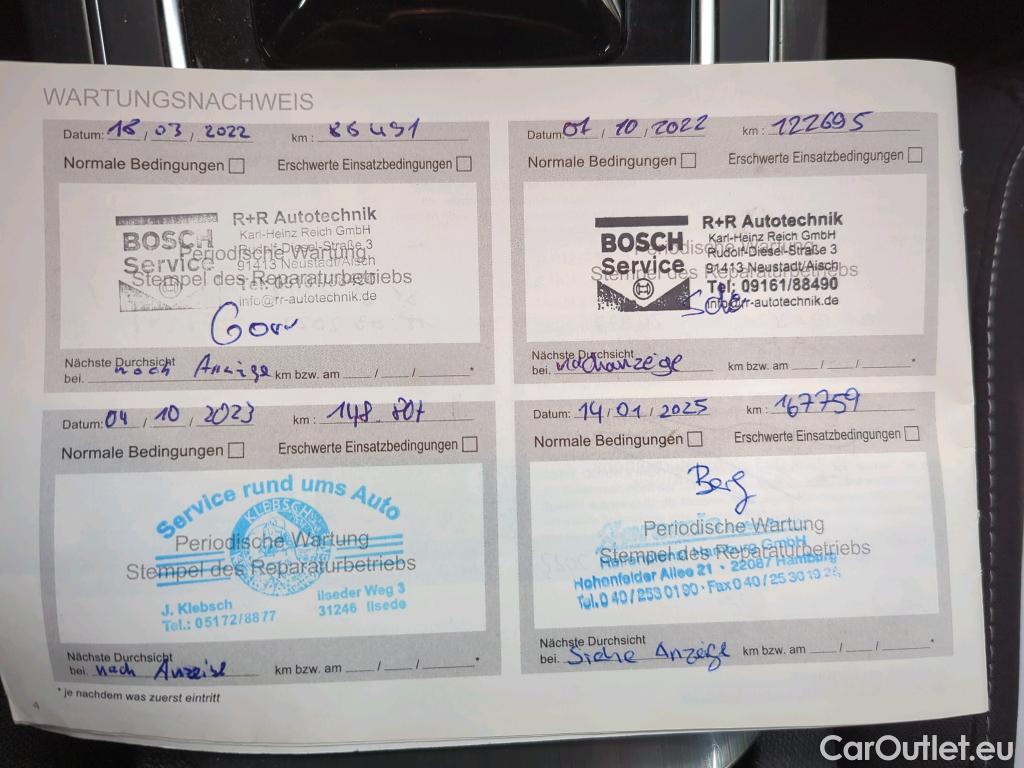 WARTUNGSNACHWEIS
Datum: 18 / 03 / 2022 km : 86 491
Normale Bedingungen Erschwerte Einsatzbedingungen
BOSCH
Service
R+R Autotechnik
Karl-Heinz Reich GmbH
Rudolf-Diesel-Straße 3
91413 Neustadt/Aisch
info@rr-autotechnik.de
Periodische Wartung
Stempel des Reparaturbetriebs
Nächste Durchsicht
bei. nach Anzeige km bzw. am / / *
Datum: 01 / 10 / 2022 km : 122695
Normale Bedingungen Erschwerte Einsatzbedingungen
BOSCH
Service
R+R Autotechnik
Karl-Heinz Reich GmbH
Rudolf-Diesel-Straße 3
91413 Neustadt/Aisch
Tel: 09161/88490
info@rr-autotechnik.de
Periodische Wartung
Stempel des Reparaturbetriebs
Nächste Durchsicht
bei. nachanzeige km bzw. am / / *
Datum: 04 / 10 / 2023 km :
Normale Bedingungen Erschwerte Einsatzbedingungen
Service rund ums Auto
KLEBSCH
Periodische Wartung
Stempel des Reparaturbetriebs
J. Klebsch
Tel.: 05172/8877
ilseder Weg 3
31246 Ilsede
Nächste Durchsicht
bei. nach Anzeige km bzw. am / / *
Datum: 14 / 01 / 2025 km : 167759
Normale Bedingungen Erschwerte Einsatzbedingungen
Berg
Periodische Wartung
Stempel des Reparaturbetriebs
Hamburg GmbH
Hohenfelder Allee 21 · 22087 Hamburg
Tel. 0 40 / 253 01 90 · Fax 0 40 / 25 30 19
Nächste Durchsicht
bei. Siehe Anzeige km bzw. am / / *
* je nachdem was zuerst eintritt
4
CarOutlet.eu